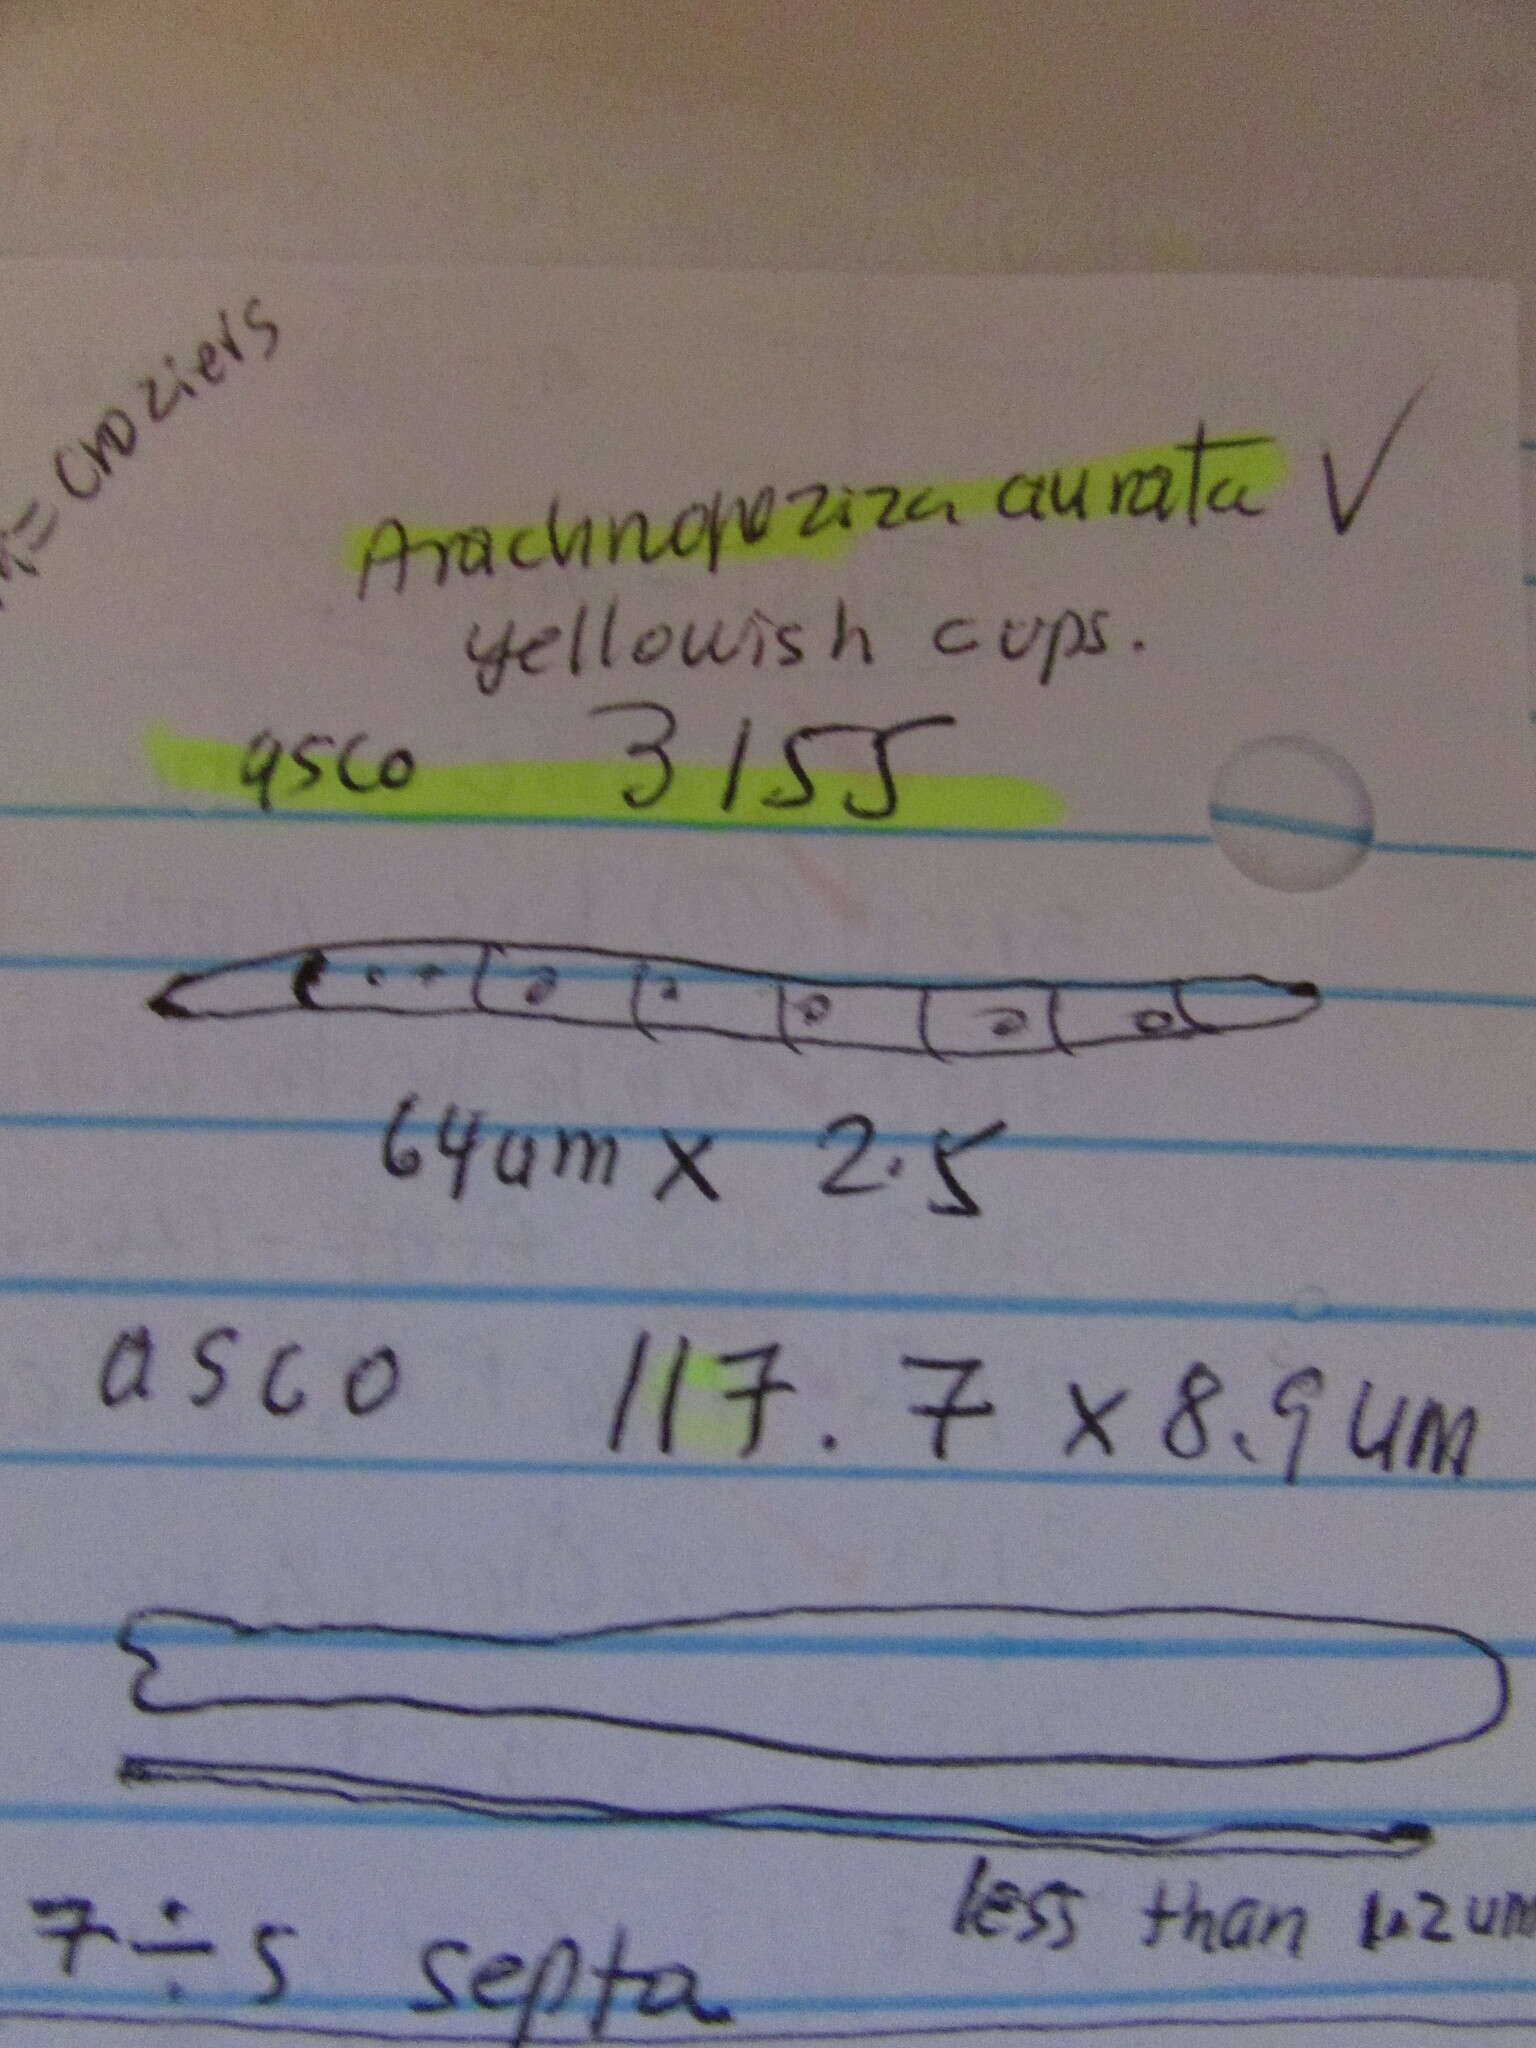 = croziers
Arachnopeziza aurata √
yellowish cups.
asco 3155
64um x 2.5
asco 117.7 x 8.9um
less than 1.2um
7÷5 septa